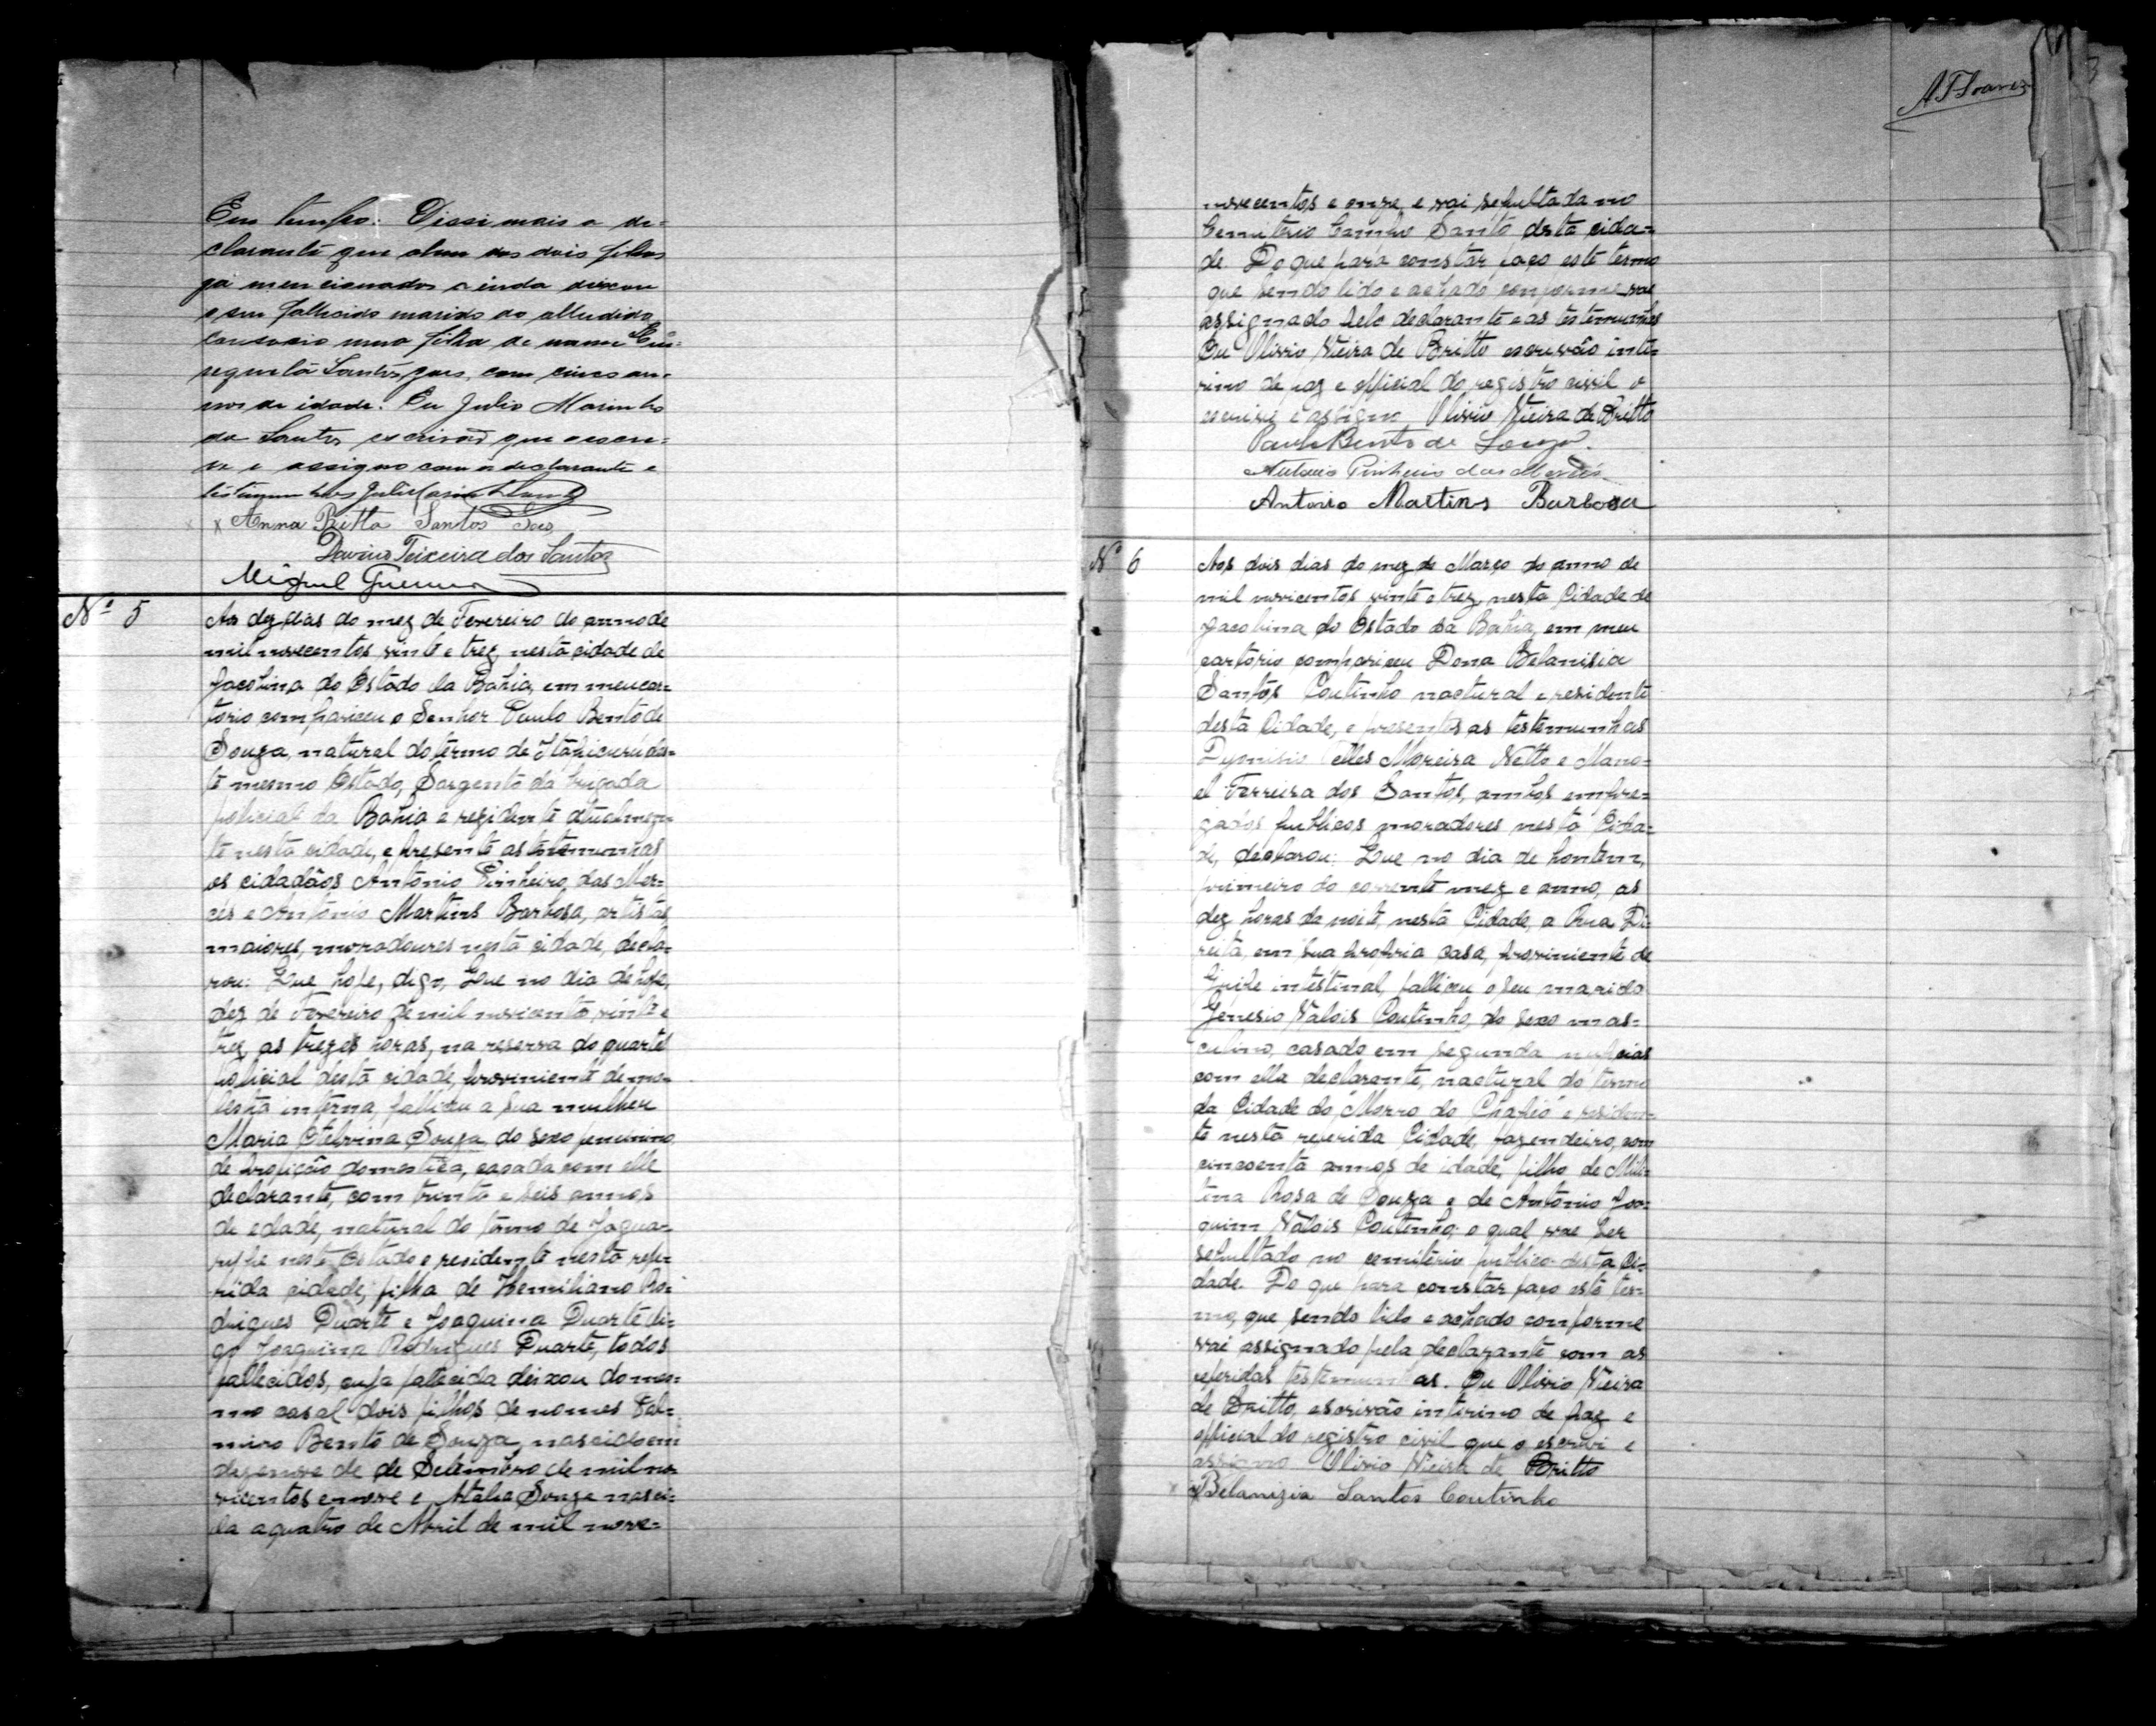 Em tempo: Disse mais a de-
clarante que alem dos dois filhos
já mencionados ainda deixou
o seu fallecido marido do alludido
consorcio uma filha de nome
Santos, com cinco an-
nos de idade. Eu Julio Marinho
de Santos escrivão que o escre-
vi e assigno com a declarante e
testimunhas Julio Marinho
Anna Ritta Santos
Davino Teixeira dos Santos
Miguel
Nº 5
Aos dez dias do mez de Fevereiro do anno de
mil novecentos vinte e trez nesta cidade de
Jacobina do Estado da Bahia, em meu car-
torio compariceu o Senhor Paulo Bento de
Souza, natural do termo de Itapicurú des-
te mesmo Estado, Sargento da brigada
policial da Bahia e rezidente atualmen-
te nesta cidade, e presente as testemunhas
os cidadãos Antonio Pinheiro das Mer-
cês e Antonio Martins Barbosa, artistas
maiores, moradoures nesta cidade, decla-
rou: Que hoje, digo, Que no dia de hoje,
dez de Fevereiro de mil novicentos vinte e
trez as trezes horas, na reserva do quartel
policial desta cidade, proviniente de mo-
lestia interna, falliceu a sua mulher
Maria Etelvina Souza do sexo feminino
de profição domestica, casada com elle
declarante, com trinta e seis annos
de edade, natural do termo de Jagua-
rype neste Estado e residente nesta refe-
rida cidade; filha de Hemiliano Ro-
drigues Duarte e Joaquina Duarte di-
go Joaquina Rodrigues Duarte, todos
fallecidos, cuja fallecida deixou do mes-
mo casal dois filhos de nomes
Bento de Souza, nascido em
dezenove de de Setembro de mil no-
vicentos e nove e Souza nasci-
da a quatro de Abril de mil nove-
A T Soares
3
novecentos e onze, e vai sepultada no
Cemiterio Campo Santo desta cida-
de. Do que para constar faço este termo
que sendo lido e achado conforme vae
assignado pelo declarante e as testemunhas
Eu Olivio Vieira de Britto escrivão inte-
rino de paz e official do registro civil o
escrivi e assigno Olivio Vieira de Britto
Paulo Bento de Souza.
Antonio Pinheiro das Mercês
Antonio Martins Barbosa
Nº 6
Aos dois dias do mez de Março do anno de
mil novicentos vinte e trez, nesta Cidade de
Jacobina do Estado da Bahia, em meu
cartorio compariceu Dona Belanisia
Santos Coutinho nactural e residente
desta Cidade, e presentes as testemunhas
Telles Moreira Netto e Mano-
el Ferreira dos Santos, ambos empre-
gados publicos moradores nesta Cida-
de, declarou: Que no dia de hontem,
primeiro do corrente mez e anno, as
dez horas da noite, nesta Cidade, a Rua Di-
reita, em sua propria casa, proviniente de
gripe intestinal, falliceu o seu marido
Jenesio Valois Coutinho, do sexo mas-
culino, casado em segunda nupcias
com ella declarante, nactural do termo
da Cidade do "Morro do Chapéo" e residen-
te nesta referida Cidade, fazendeiro, com
cincoenta annos de idade, filho de
Rosa de Souza e de Antonio Joa-
quim Valois Coutinho; o qual vae ser
sepultado no cemitério publico desta Ci-
dade. Do que para constar faço este ter-
mo, que sendo lido e achado conforme
vai assignado pela declarante com as
referidas testemunhas. Eu Olivio Vieira
de Britto, escrivão interino de paz e
official do registro civil que o escrivi e
assigno Olivio Vieira de Britto
Belanizia Santos Coutinho